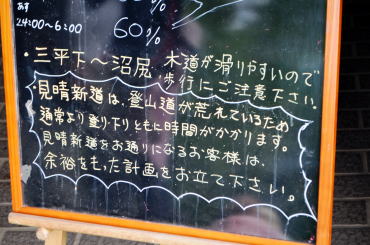 あす
24:00~6:00
60%
・三平下~沼尻 木道が滑りやすいので
歩行にご注意下さい。
・見晴新道は、登山道が荒れているため
通常より登り、下りともに時間がかかります。
見晴新道をお通りになるお客様は、
余裕をもった計画をお立て下さい。